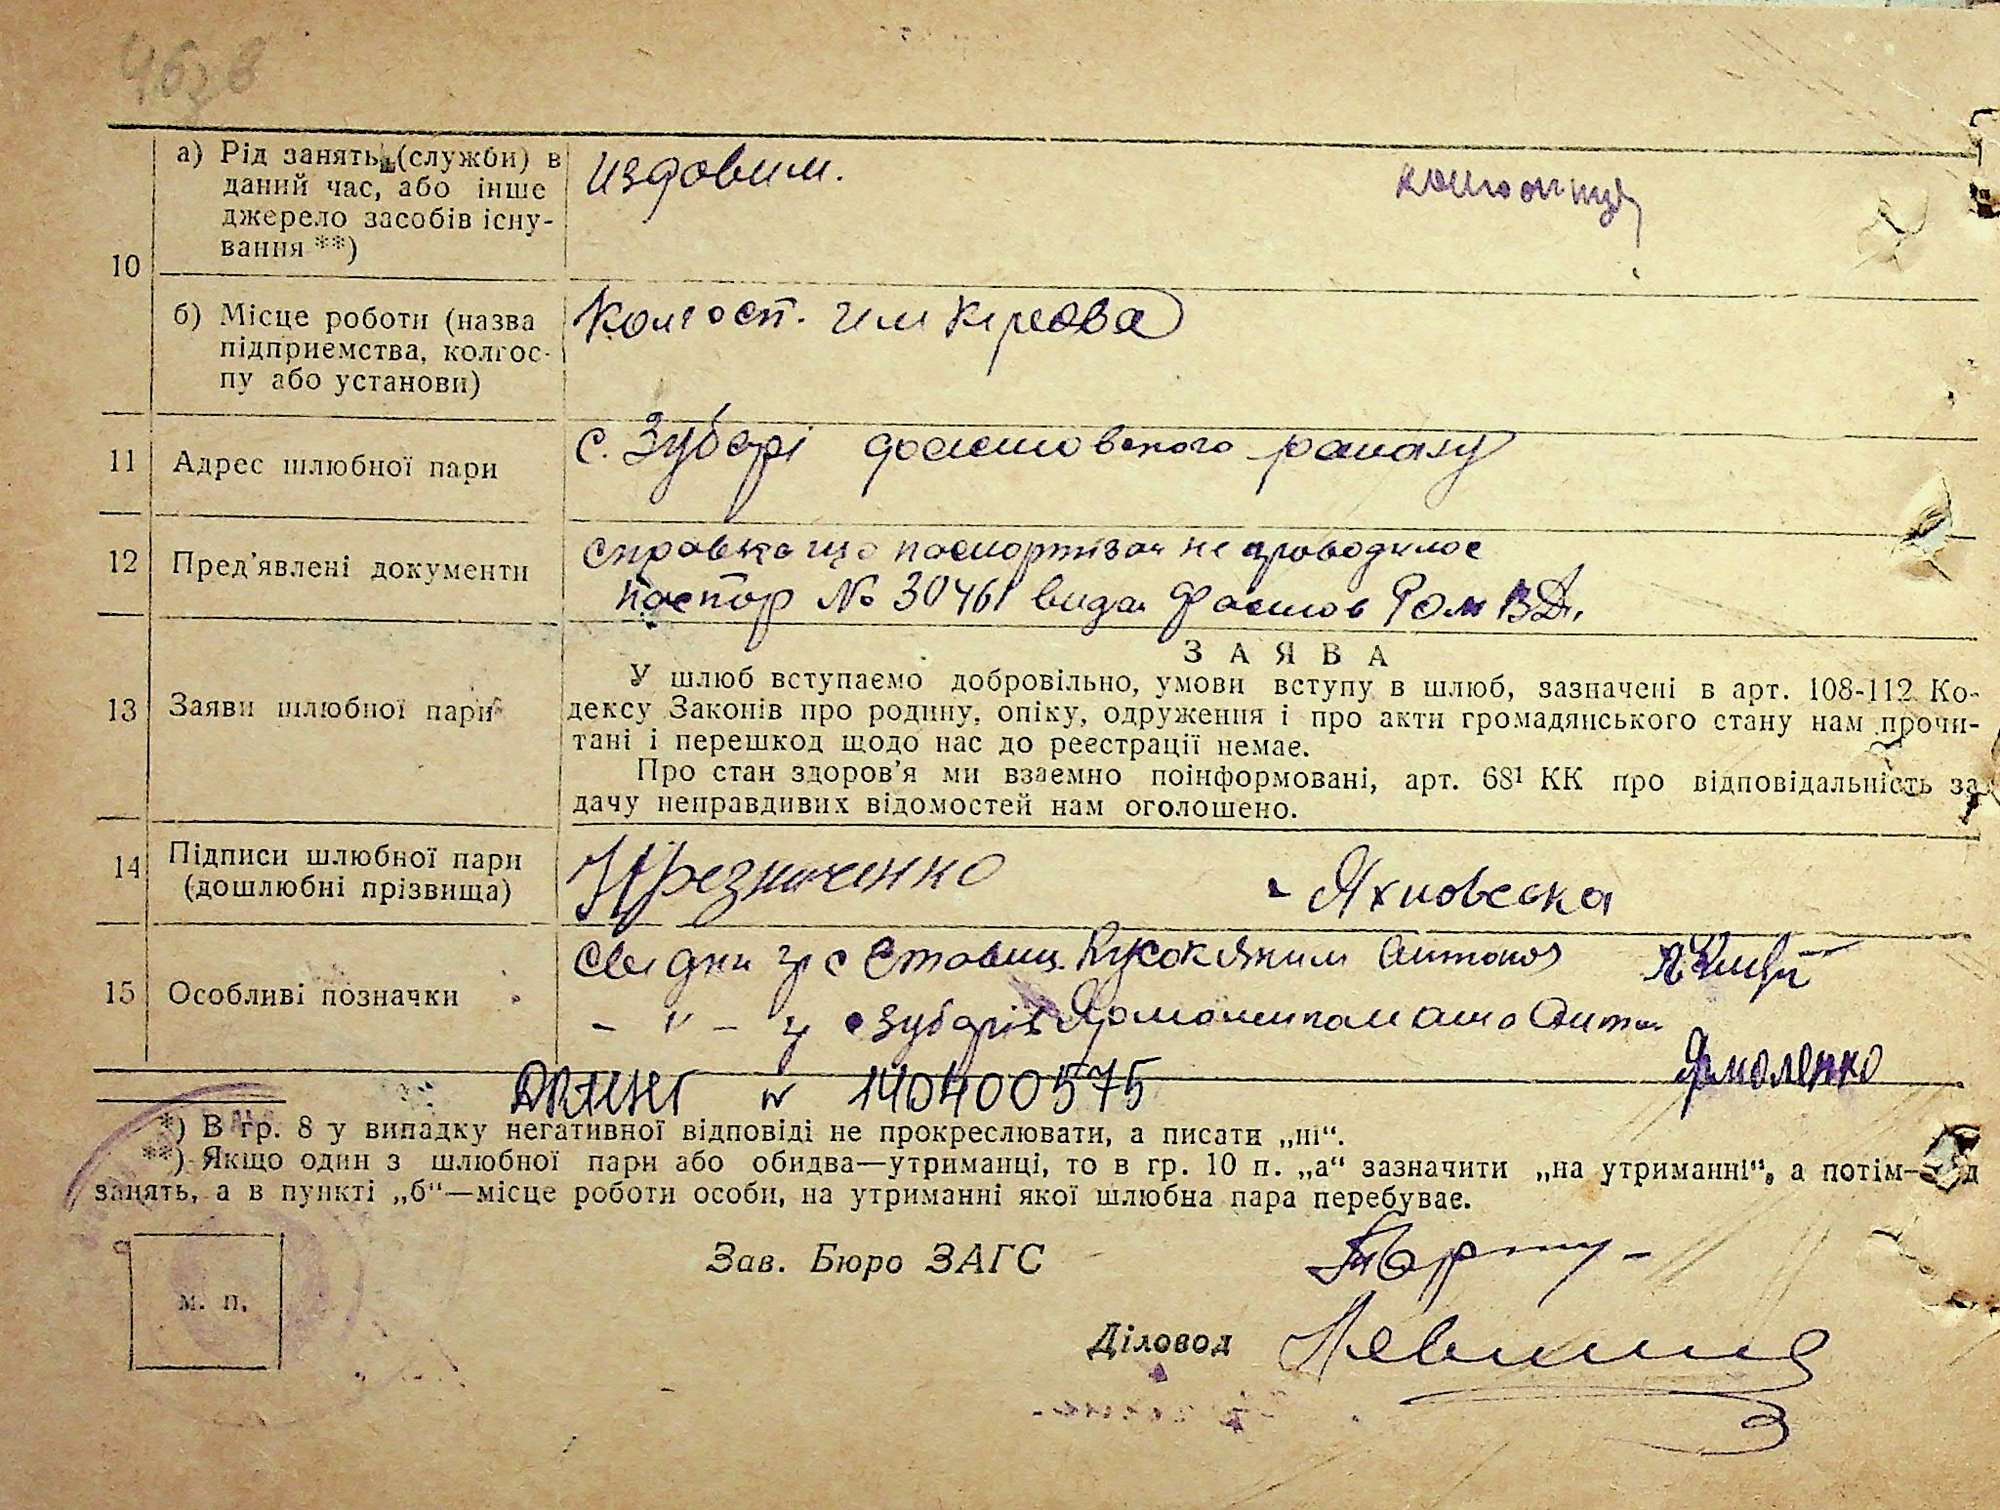 10
а) Рід занять (служби) в
даний час, або інше
джерело засобів існу-
вання **)
издовим.
б) Місце роботи (назва
підприємства, колгос-
пу або установи)
Колгосп. Кірова
11
Адрес шлюбної пари
с. Зубарі фастовського району
12
Пред'явлені документи
справка що паспортизац не проводилос
паспор № 30461 видан Фастов Ром ВД.
13
Заяви шлюбної пари
ЗАЯВА
У шлюб вступаємо добровільно, умови вступу в шлюб, зазначені в арт. 108-112 Ко-
дексу Законів про родину, опіку, одруження і про акти громадянського стану нам прочи-
тані і перешкод щодо нас до реєстрації немає.
Про стан здоров'я ми взаємно поінформовані, арт. 68¹ КК про відповідальність за
дачу неправдивих відомостей нам оголошено.
14
Підписи шлюбної пари
(дошлюбні прізвища)
Яхновська
15
Особливі позначки
Свидки Кусок Яким Антонов
- " - Зубарів
Ярмоленко
№ 140400575
*) В гр. 8 у випадку негативної відповіді не прокреслювати, а писати „ні“.
**) Якщо один з шлюбної пари або обидва—утриманці, то в гр. 10 п. „а“ зазначити „на утриманні“, а потім—
занять, а в пункті „б“—місце роботи особи, на утриманні якої шлюбна пара перебуває.
Зав. Бюро ЗАГС
м. п.
Діловод